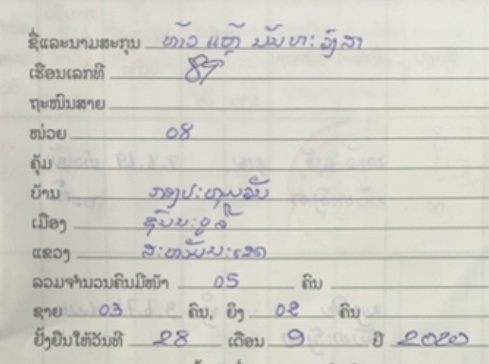 ຊື່ແລະນາມສະກຸນ ທ້າວ ແຫຼ້ ນັນທະວົງສາ
ເຮືອນເລກທີ 87
ຖະໜົນສາຍ
ໜ່ວຍ 08
ຄຸ້ມ
ບ້ານ
ເມືອງ ຊົນນະບູລີ
ແຂວງ ສະຫວັນນະເຂດ
ລວມຈຳນວນຄົນມີໜ້າ 05 ຄົນ
ຊາຍ 03 ຄົນ, ຍິງ 02 ຄົນ
ຢັ້ງຢືນໃຫ້ວັນທີ 28 ເດືອນ 9 ປີ 2020